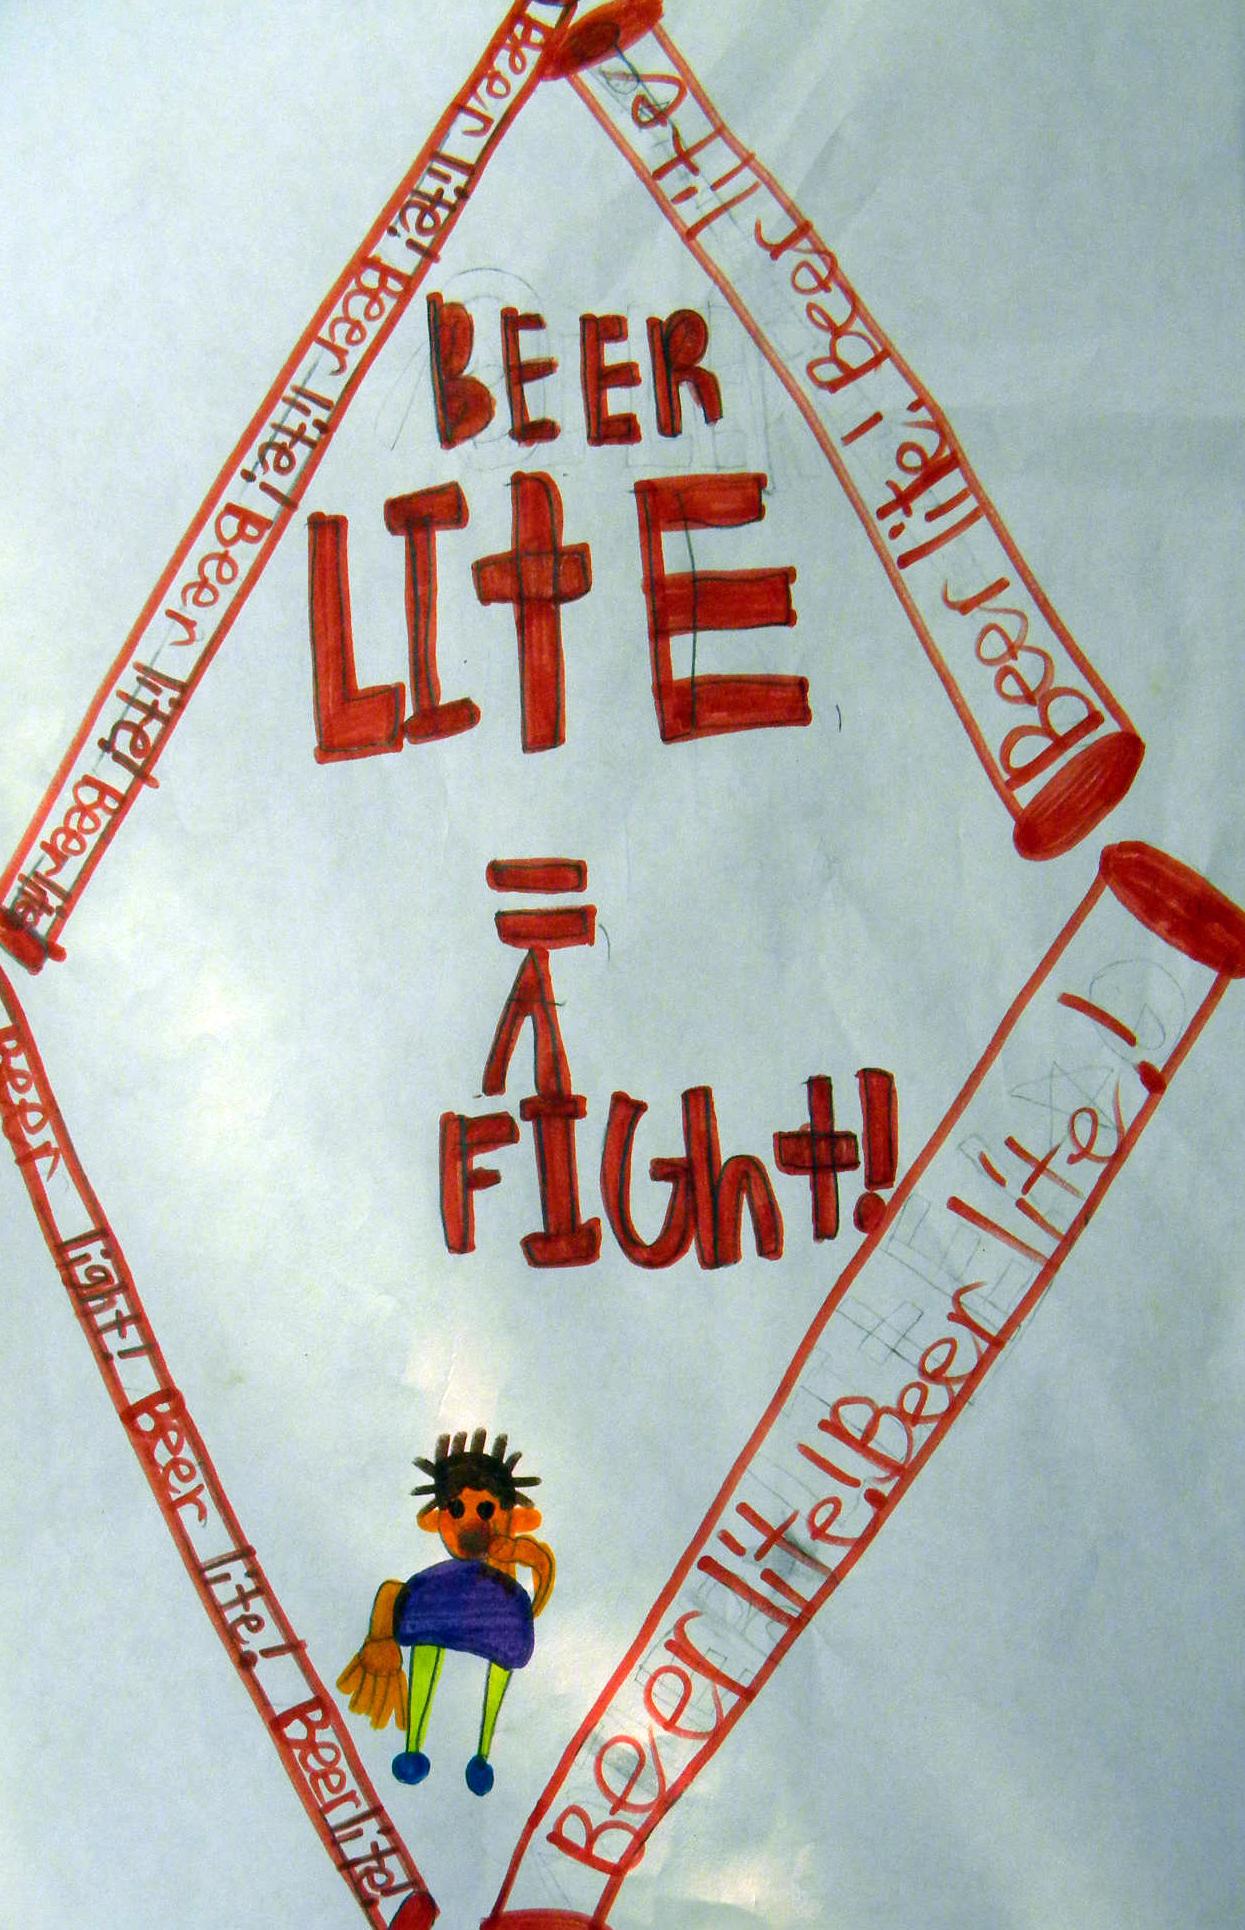 Beer lite! Beer lite! Beer lite! Beer lite!
Beer lite! Beer lite
BEER
LItE
=
A
FIGht!
Beer light! Beer lite! Beer lite!
Beer lite! Beer lite!